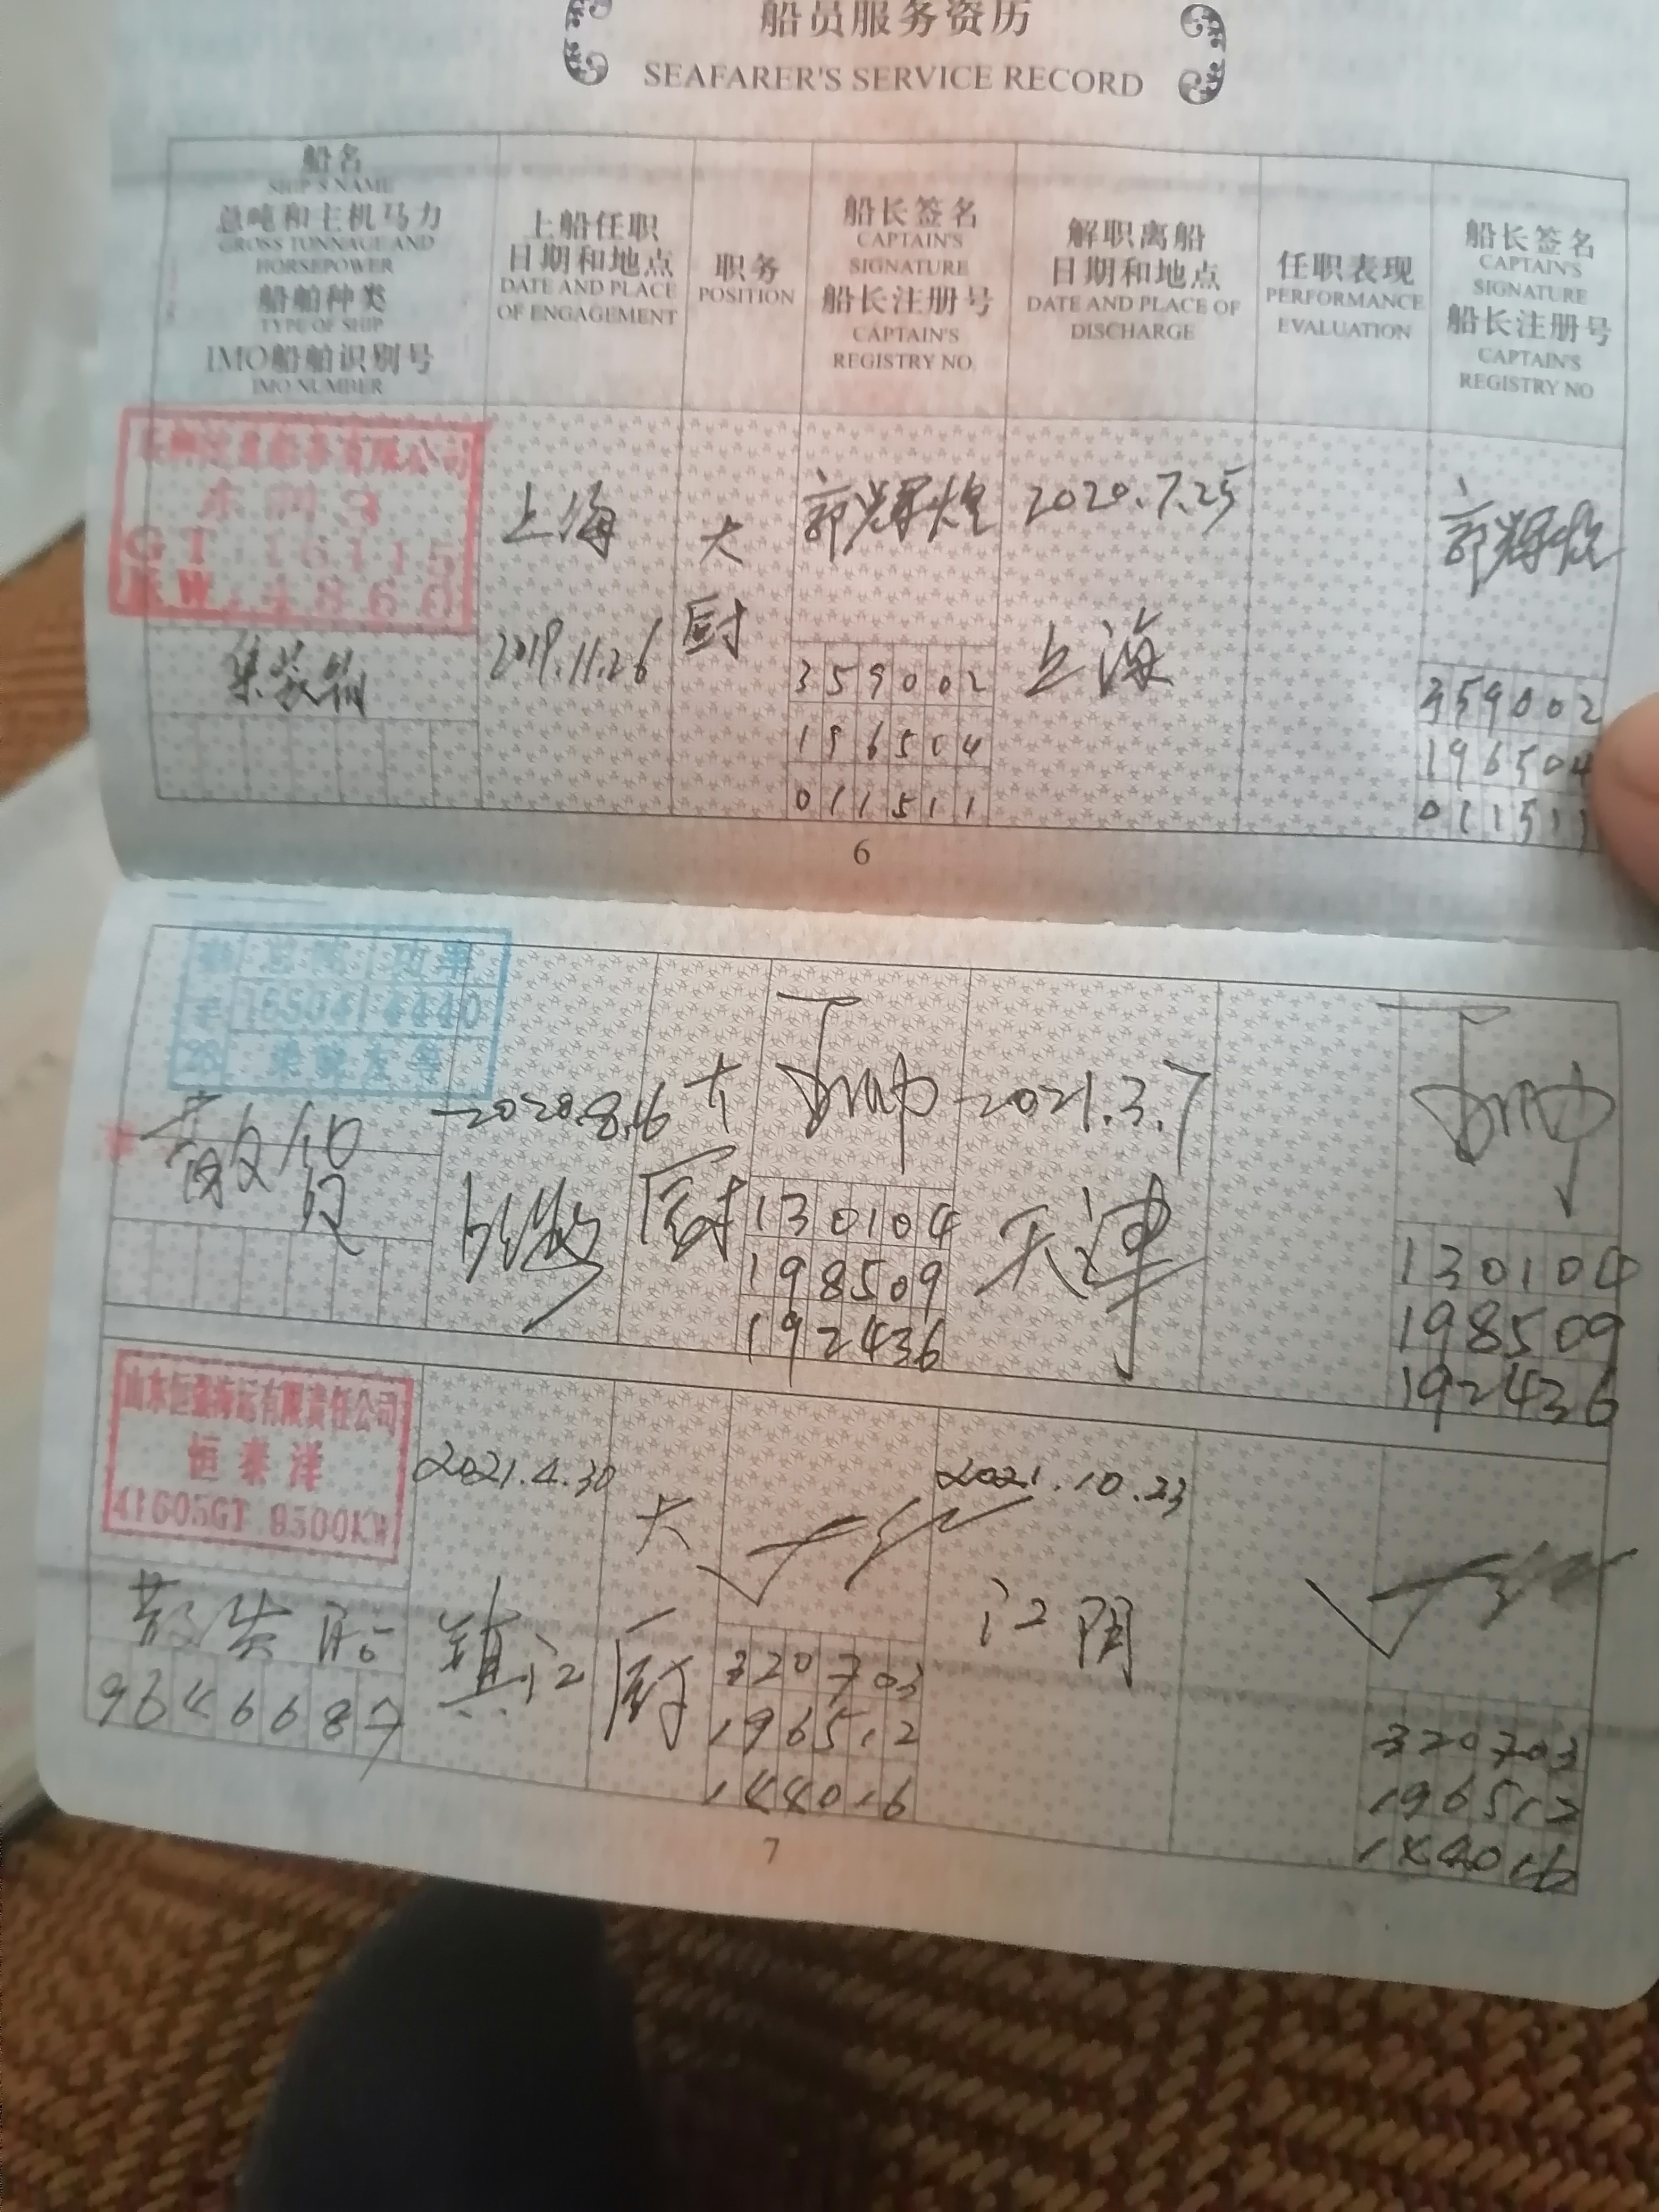 船员服务资历
SEAFARER'S SERVICE RECORD
船名
SHIP'S NAME
总吨和主机马力
GROSS TUNNAGE AND
HORSEPOWER
船舶种类
TYPE OF SHIP
IMO船舶识别号
IMO NUMBER
上船任职
日期和地点
DATE AND PLACE
OF ENGAGEMENT
职务
POSITION
船长签名
CAPTAIN'S
SIGNATURE
船长注册号
CAPTAIN'S
REGISTRY NO.
解职离船
日期和地点
DATE AND PLACE OF
DISCHARGE
任职表现
PERFORMANCE
EVALUATION
船长签名
CAPTAIN'S
SIGNATURE
船长注册号
CAPTAIN'S
REGISTRY NO
有限公司
GT 16115
4860
集装箱
上海
2019.11.26
大
厨
郭辉煌
359002
196504
011511
2020.7.25
上海
郭辉煌
359002
196504
011511
6
总吨 功率
16504 4440
28
散货船
2020.8.16
大
厨
130104
198509
192436
2021.3.7
天津
130104
198509
192436
山东恒强海运有限责任公司
恒泰洋
41605GT 9500KW
散货船
9646687
2021.4.30
镇江
大
厨
320703
196512
144016
2021.10.23
江阴
320703
196512
144016
7